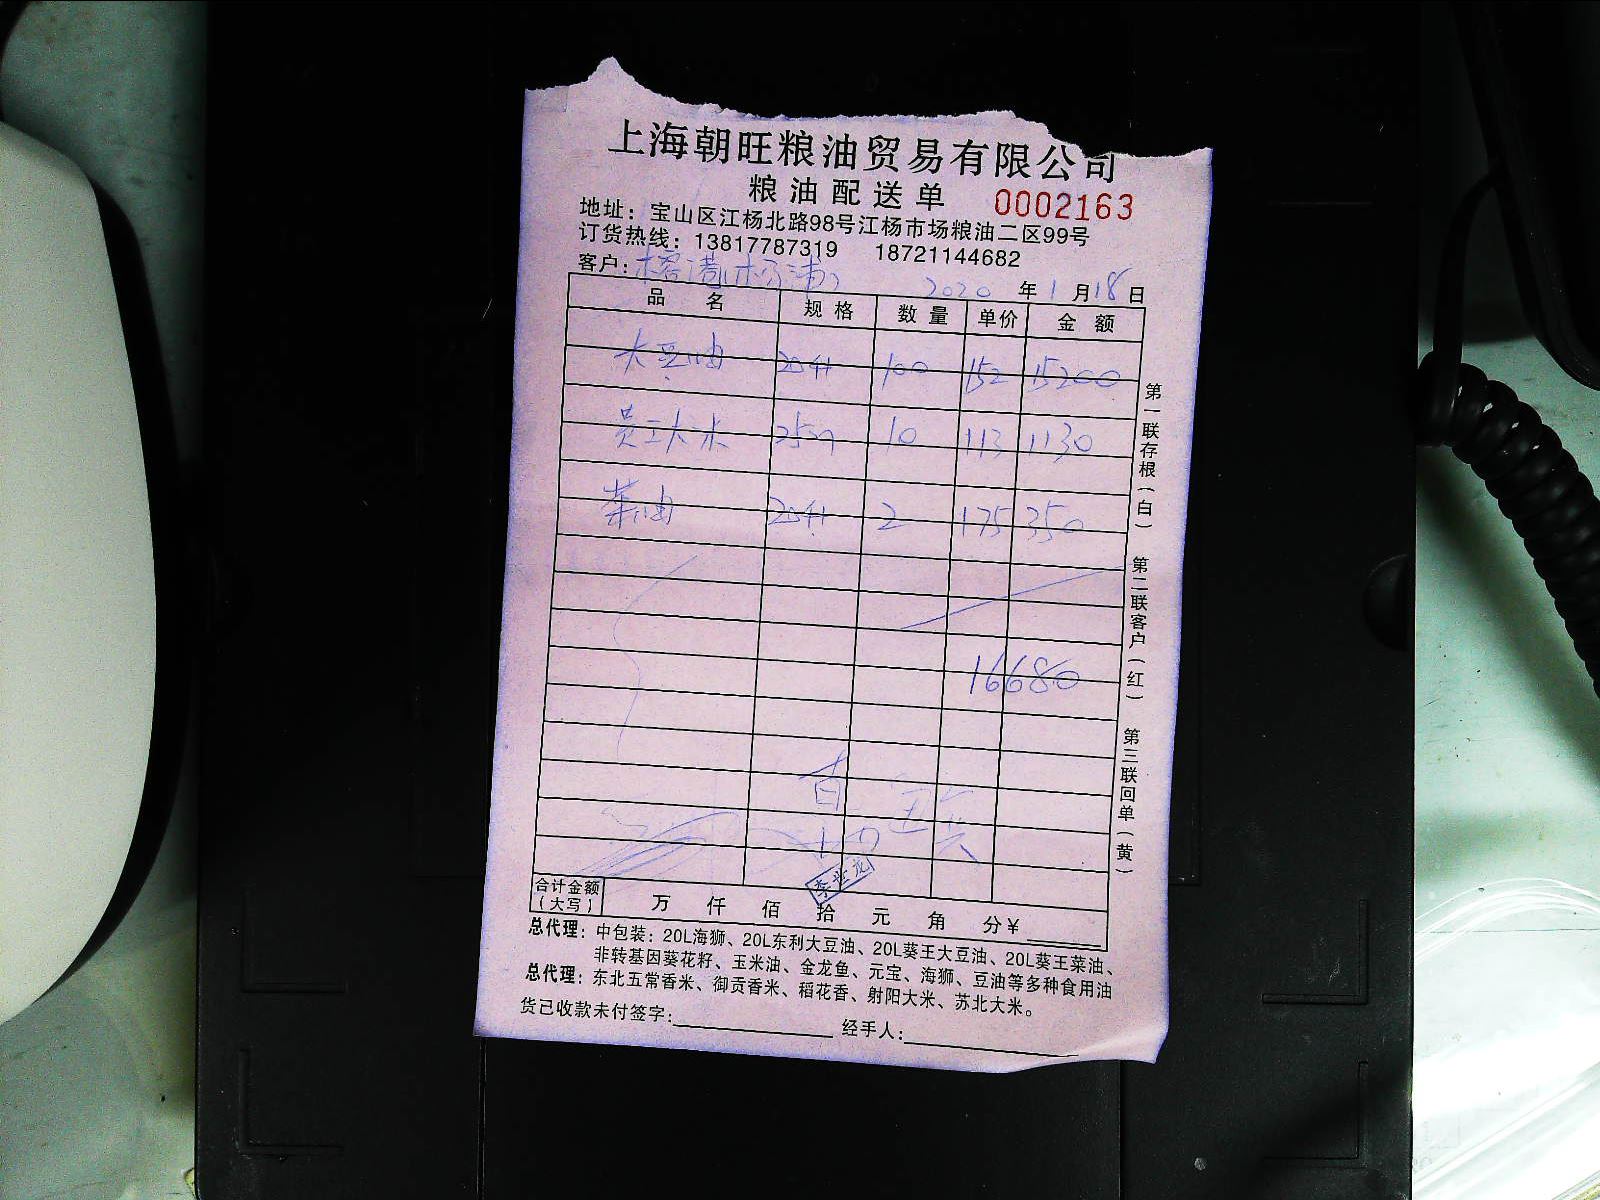 上海朝旺粮油贸易有限公司
粮油配送单 0002163
地址：宝山区江杨北路98号江杨市场粮油二区99号
订货热线：13817787319 18721144682
客户： 2020 年 1 月 18 日
品名 规格 数量 单价 金额
大豆油 20升 100 152 15200
员工大米 25 10 113 1130
菜油 20升 2 175 350
16680
李世龙
合计金额（大写） 万 仟 佰 拾 元 角 分￥
总代理：中包装：20L海狮、20L东利大豆油、20L葵王大豆油、20L葵王菜油、
非转基因葵花籽、玉米油、金龙鱼、元宝、海狮、豆油等多种食用油
总代理：东北五常香米、御贡香米、稻花香、射阳大米、苏北大米。
货已收款未付签字： 经手人：
第一联存根（白） 第二联客户（红） 第三联回单（黄）